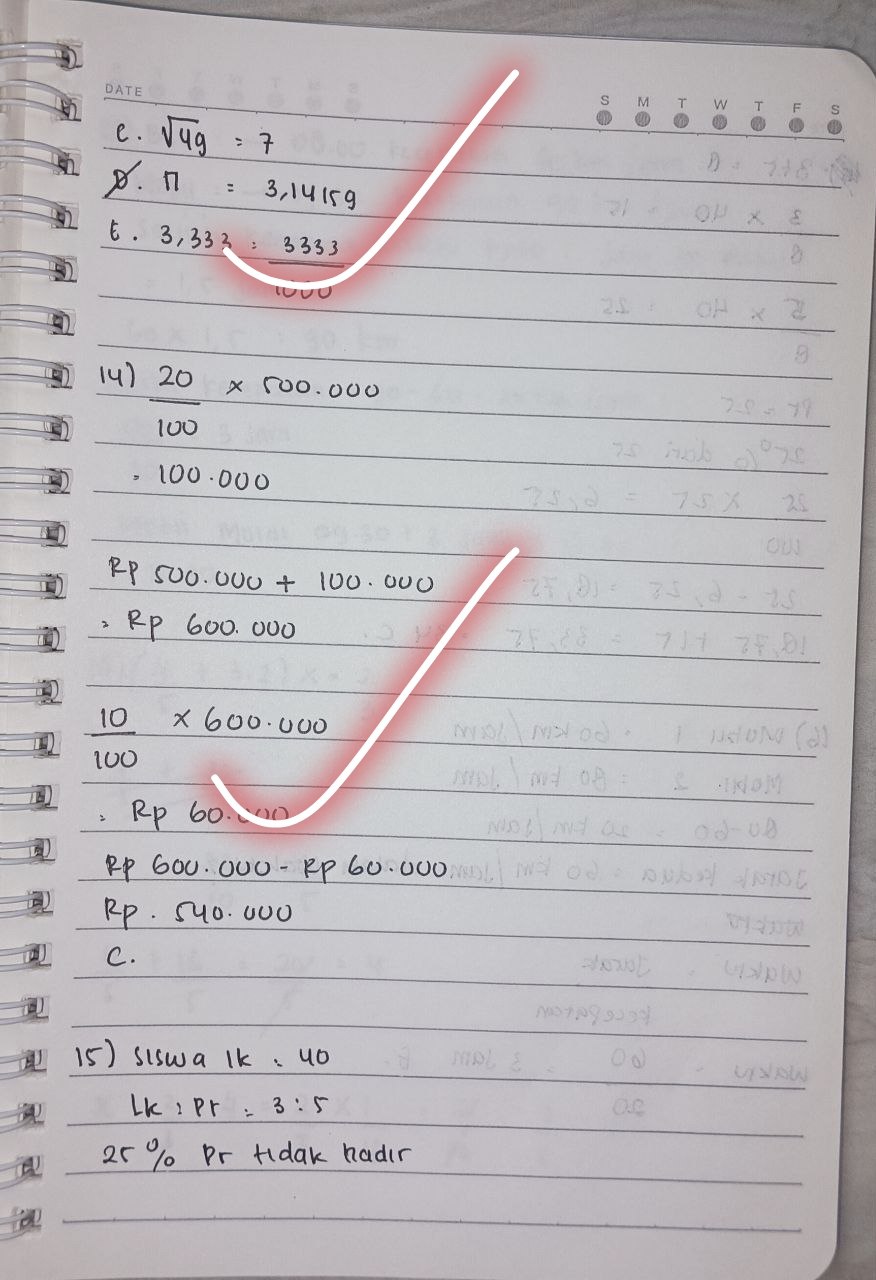 DATE
S M T W T F S
c. √49 = 7
D. π = 3,14159
E. 3,333 = 3333
1000
14) 20 x 500.000
100
= 100.000
Rp 500.000 + 100.000
= Rp 600.000
10 x 600.000
100
= Rp 60.000
Rp 600.000 - Rp 60.000
Rp. 540.000
C.
15) Siswa lk = 40
Lk : Pr = 3 : 5
25 % Pr tidak hadir